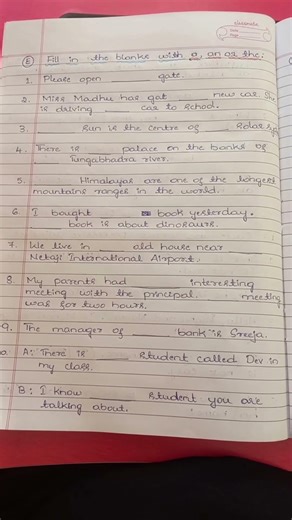 classmate
Date
Page
E Fill in the blanks with a, an or the:
1. Please open ______ gate.
2. Miss Madhu has got ______ new car. She
is driving ______ car to school.
3. ______ Sun is the centre of ______ Solar
4. There is ______ palace on the banks of
______ Tungabhadra river.
5. ______ Himalayas are one of the longest
mountains ranges in the world.
6 I bought ______ book yesterday.
______ book is about dinosaurs.
7. We live in ______ old house near ______
Netaji International Airport.
8. My parents had ______ interesting
meeting with the principal. ______ meeting
was for two hours.
9. The manager of ______ bank is Sreeja.
A: There is ______ student called Dev in
my class.
B: I know ______ student you are
talking about.